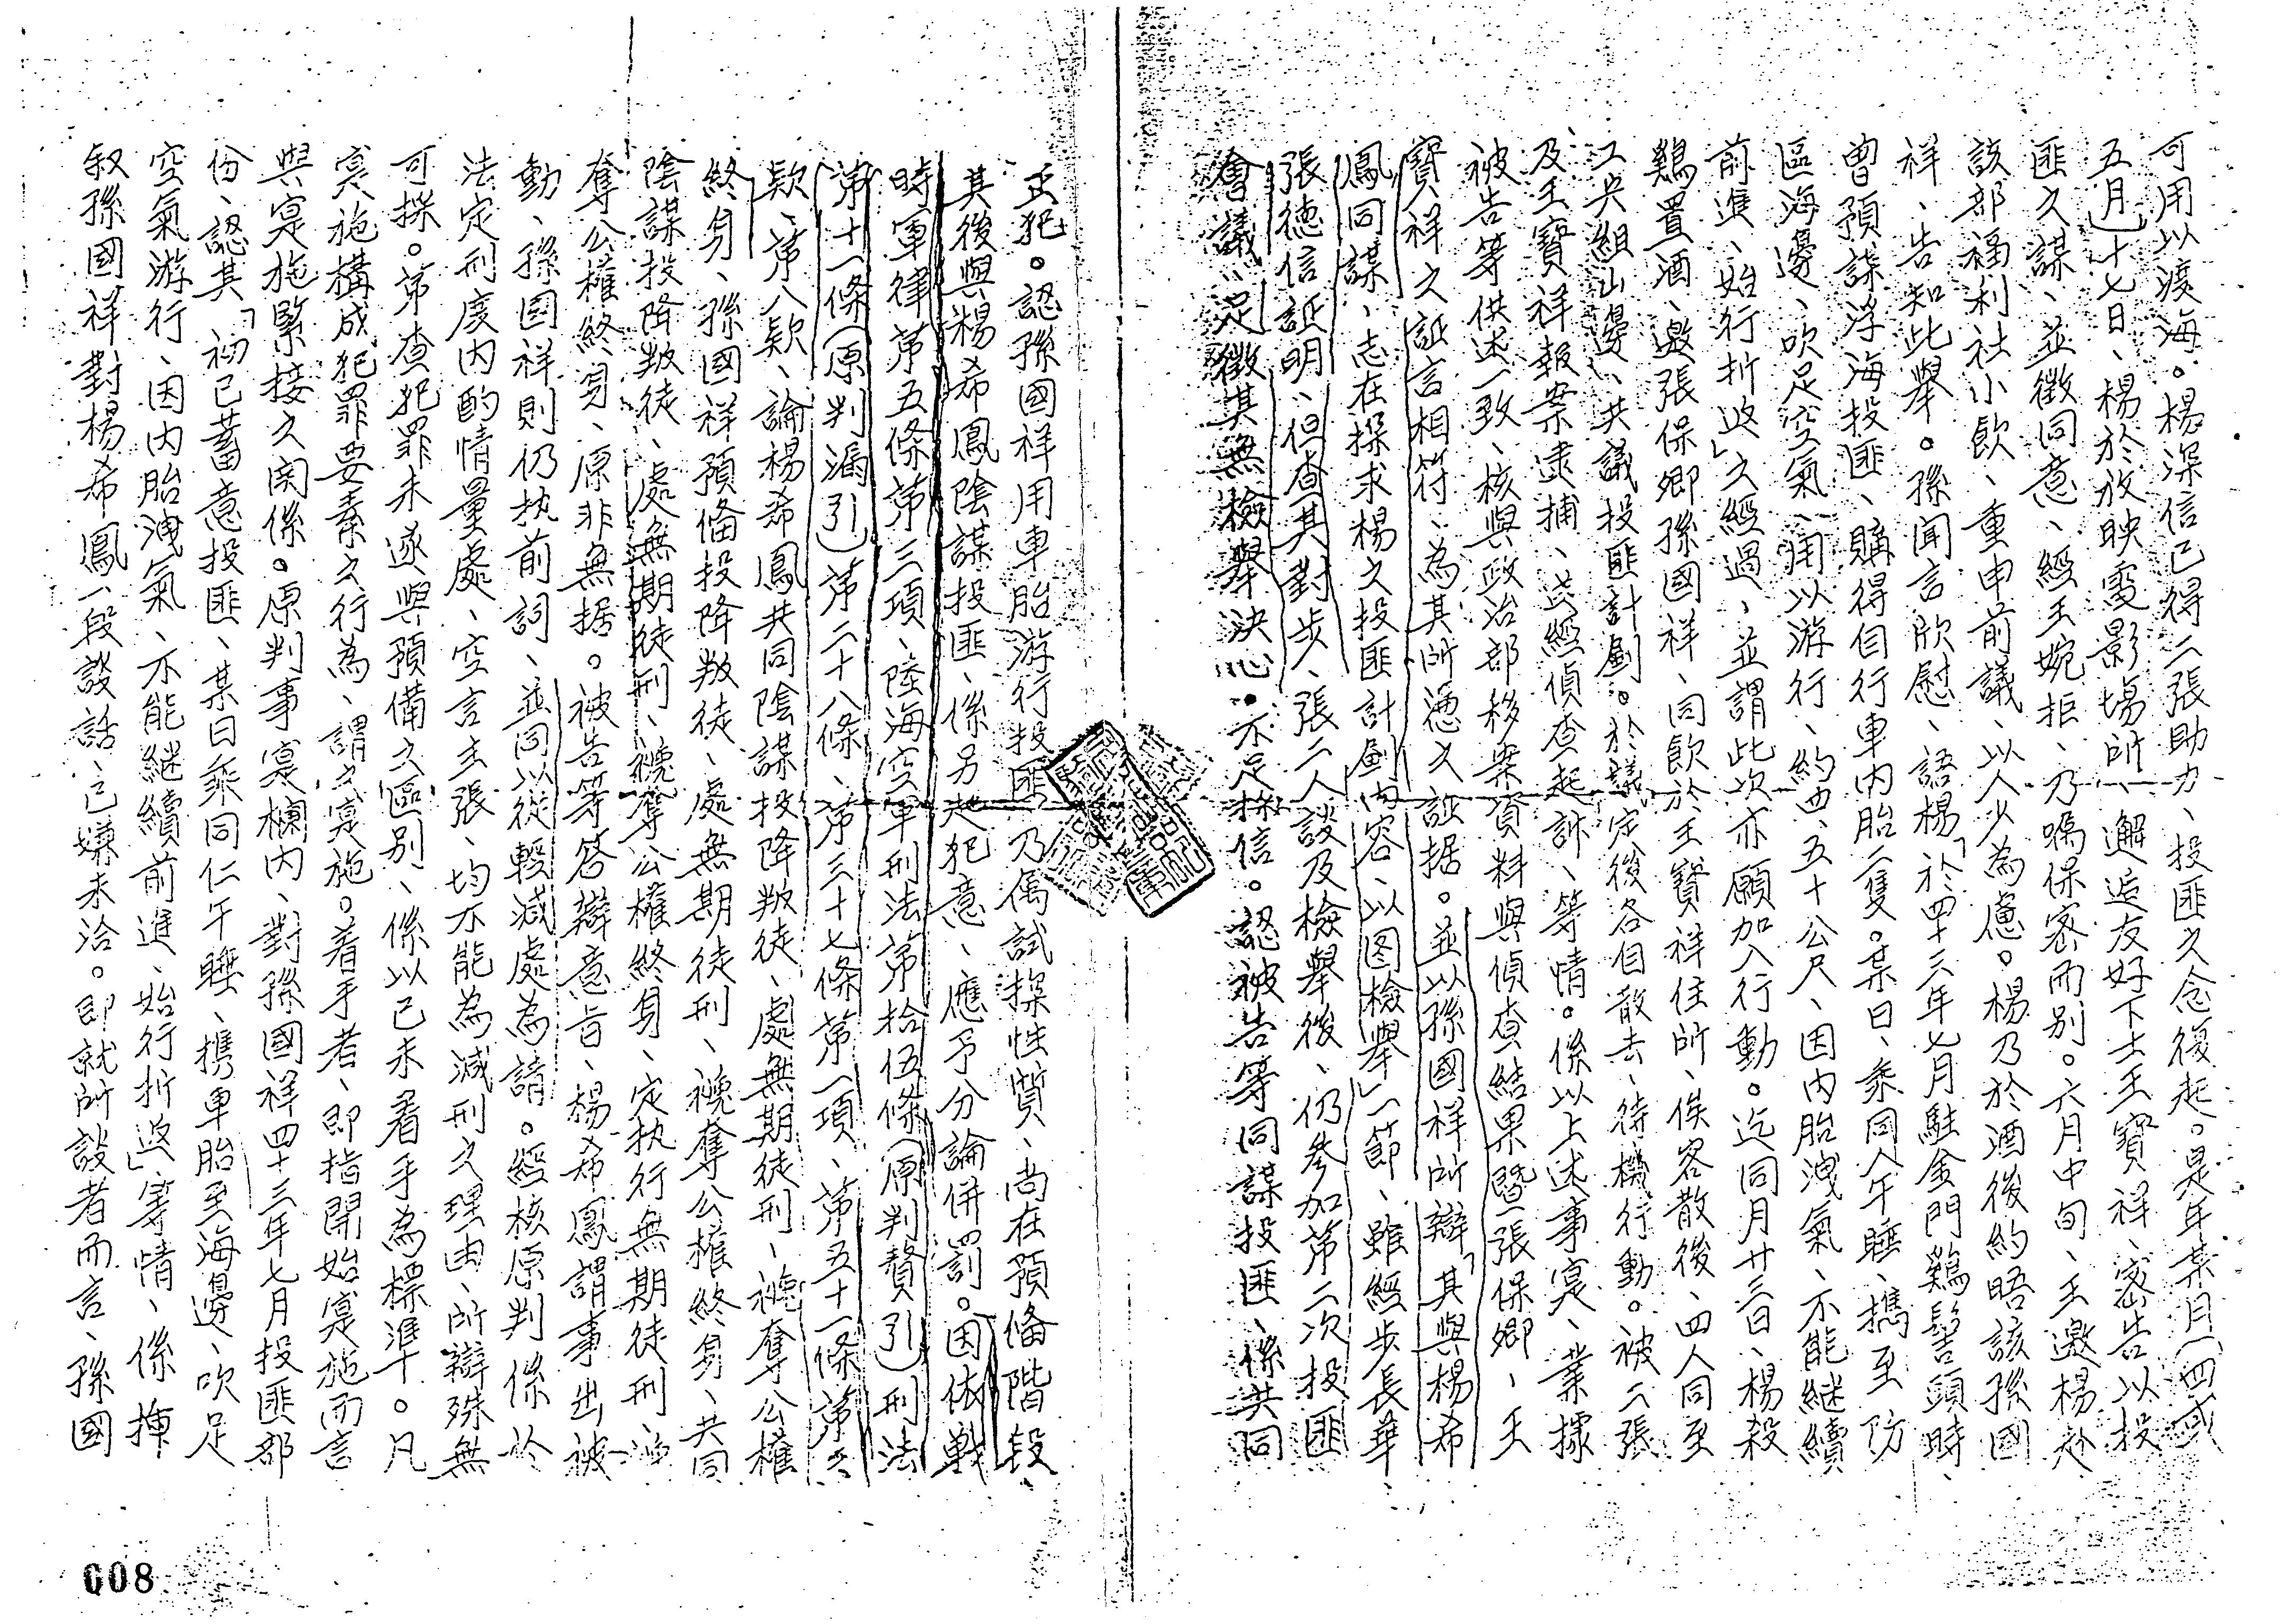 可用以渡海。楊深信已得二張助力、投匪之念復起。是年某月(四或
五月)十七日、楊於放映電影場所、邂逅友好下士王寶祥、密告以投
匪之謀、並徵同意、經王婉拒、乃囑保密而別。六月中旬、王邀楊赴
該部福利社小飲、重申前議、以人少為慮。楊乃於酒後約晤該孫國
祥、告知此舉。孫聞言欣慰、語楊「於四十三年七月駐金門鷄髻頭時、
曾預謀浮海投匪、購得自行車內胎二隻。某日、乘同人午睡、携至防
區海邊、吹足空氣、用以游行、約四、五十公尺、因內胎洩氣、不能継續
前進、始行折返」之經過、並謂此次亦願加入行動。迄同月廿三日、楊殺
鷄置酒、邀張保卿孫國祥、同飲於王寶祥住所、俟客散後、四人同至
工兵組山邊、共議投匪計劃。於議定後各自散去、待機行動。被二張
及王寶祥報案逮捕、迭經偵查起訴、等情。係以上述事寔、業據
被告等供述一致、核與政治部移案資料與偵查結果暨張保卿、王
寶祥之証言相符、為其所憑之証据。並以孫國祥所辯「其與楊希
鳳同謀、志在探求楊之投匪計劃內容、以图檢舉」一節、雖經步長華、
張德信証明、但查其對步、張二人談及檢舉後、仍參加第二次投匪
會議、足徵其無檢舉決心、不足採信。認被告等同謀投匪、係共同
正犯。認孫國祥用車胎游行投匪、乃属試探性質、尚在預俻階段、
其後與楊希鳳陰謀投匪、係另起犯意、應予分論併罰。因依戦
時軍律第五條第三項、陸海空軍刑法第拾伍條(原判贅引)刑法
第十一條(原判漏引)第二十八條、第三十七條第一項、第五十一條第三
款、第八款、論楊希鳳共同陰謀投降叛徒、處無期徒刑、褫奪公權
終身、孫國祥預俻投降叛徒、處無期徒刑、褫奪公權終身、共同
陰謀投降叛徒、處無期徒刑、褫奪公權終身、定执行無期徒刑、褫
奪公權終身、原非無据。被告等答辯意旨、楊希鳳謂事出被
動、孫國祥則仍执前詞、並同以從輕減處為請。經核原判係於
法定刑度內酌情量處、空言主張、均不能為減刑之理由、所辯殊無
可採。第查犯罪未遂與預備之區别、係以已未着手為標準。凡
寔施構成犯罪要素之行為、謂之寔施。着手者、即指開始寔施而言
與寔施緊接之関係。原判事寔欄內、對孫國祥四十三年七月投匪部
份、認其「初已蓄意投匪、某日乘同仁午睡、携車胎至海邊、吹足
空氣游行、因內胎洩氣、不能継續前進、始行折返」等情、係摭
叙孫國祥對楊希鳳一段談話、已嫌未洽。即就所談者而言、孫國
008